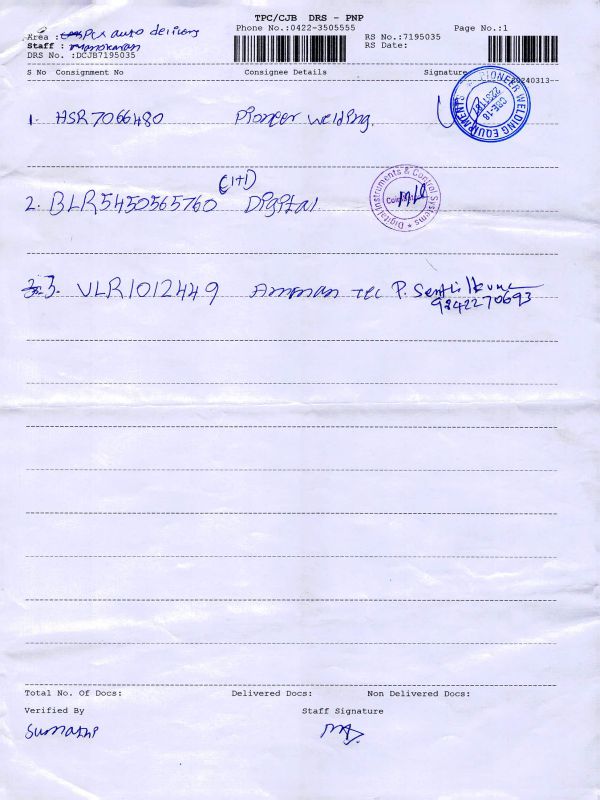 TPC/CJB DRS - PNP
Phone No.:0422-3505555
Page No.:1
Area : PCX auto delivery
RS No.:7195035
Staff : Manokaran
RS Date:
DRS No. :DCJB7195035
S No Consignment No Consignee Details Signature
20240313
1. HSR7066480 Pioneer welding.
PIONEER WELDING EQUIPMENT
CBE-18
2. BLR5450565760 (1+1) Digital
Digital Instruments & Control Systems
3. VLR1012449 Amman Tec P. Senthilkumar
9842270693
Total No. Of Docs: Delivered Docs: Non Delivered Docs:
Verified By Staff Signature
Sumathi